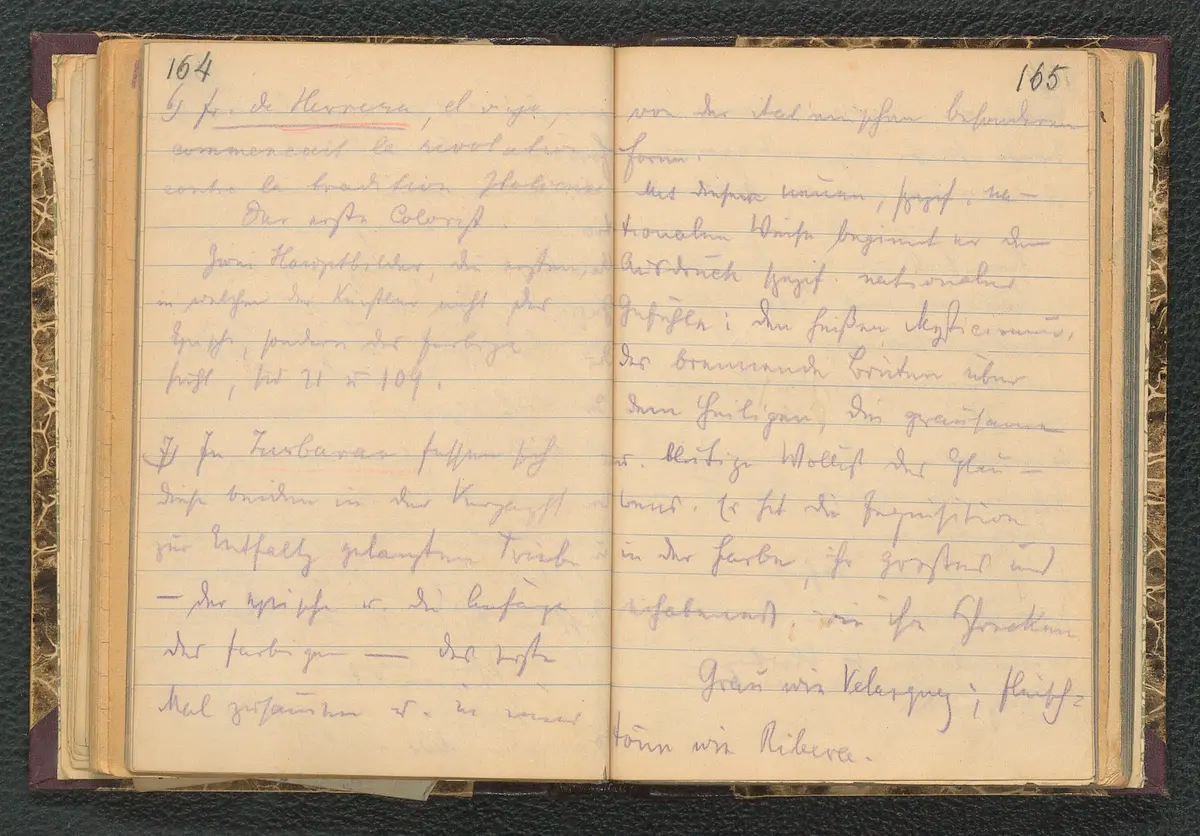 164
6) Fr. de Herrera, el viejo,
commencait la revolution
contre la tradition Italienne
Der erste Colorist.
Zwei Hauptbilder, die ersten,
in welchen der Künstler nicht das
Epische, sondern das Farbige
sucht, sid 21 u 104.
7) In Zurbaran fassen sich
diese beiden in der
zur Entfaltg gelangten Triebe
— der epische u. die Anfänge
des farbigen — das erste
Mal zusammen u. in einer
165
von der italienischen besonderen
Form.
Mit dieser neuen, spezif. na-
tionalen Weise beginnt er den
Ausdruck spezif. nationaler
Gefühle: den heißen Mysticismus,
das brennende Brüten über
dem Heiligen, die grausame
u. blutige Wollust des Glau-
bens. Er hat die Inquisition
in der Farbe, ihr großes und
erhabenes, wie ihr Schrecken
Grau wie Velasquez; Fleisch-
töne wie Ribera.